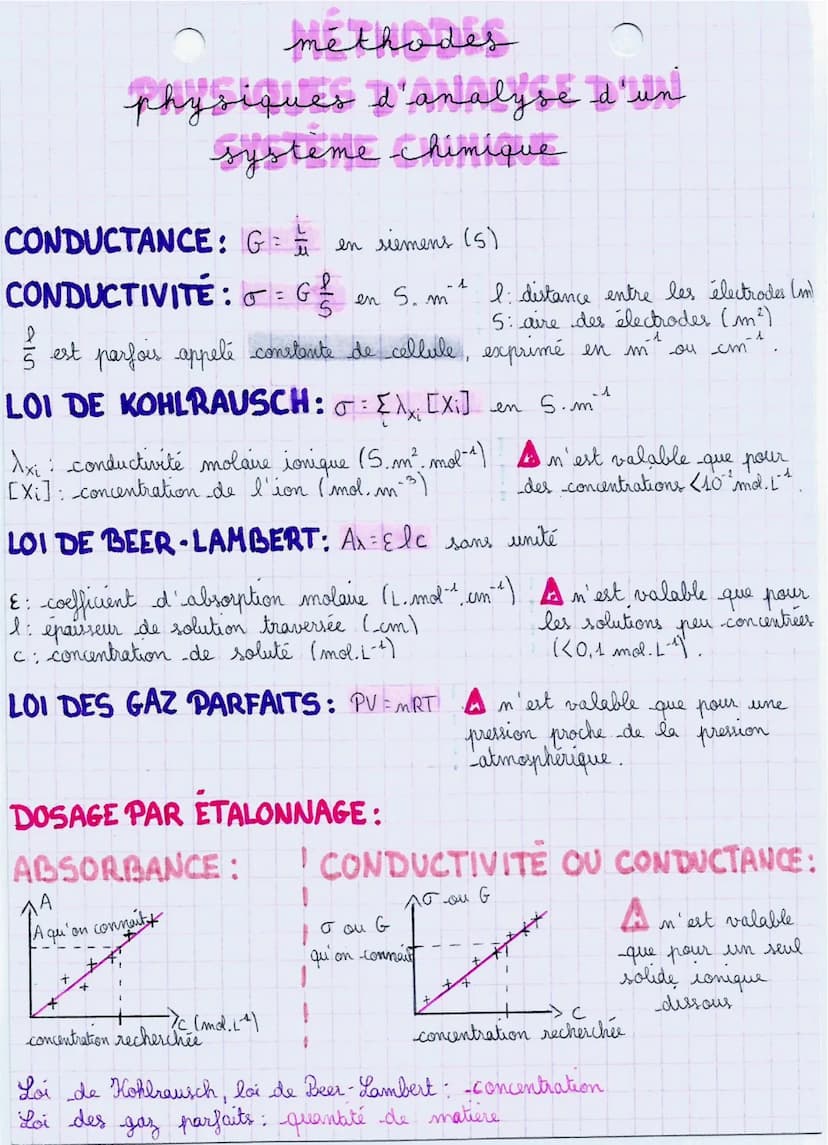 méthodes
physiques d'analyse d'un
système chimique
CONDUCTANCE : G = i/u en siemens (S)
CONDUCTIVITÉ : σ = G l/S en S.m⁻¹
l : distance entre les électrodes (m)
S : aire des électrodes (m²)
l/S est parfois appelé constante de cellule, exprimé en m⁻¹ ou cm⁻¹.
LOI DE KOHLRAUSCH : σ = Σᵢ λxᵢ [Xi] en S.m⁻¹
λxᵢ : conductivité molaire ionique (S.m².mol⁻¹)
[Xi] : concentration de l'ion (mol.m⁻³)
⚠ n'est valable que pour
des concentrations <10⁻²mol.L⁻¹.
LOI DE BEER-LAMBERT : Aλ = εlc sans unité
ε : coefficient d'absorption molaire (L.mol⁻¹.cm⁻¹)
l : épaisseur de solution traversée (cm)
c : concentration de soluté (mol.L⁻¹)
⚠ n'est valable que pour
les solutions peu concentrées
(<0,1 mol.L⁻¹).
LOI DES GAZ PARFAITS : PV = nRT
⚠ n'est valable que pour une
pression proche de la pression
atmosphérique.
DOSAGE PAR ÉTALONNAGE :
ABSORBANCE :
A
A qu'on connait
c (mol.L⁻¹)
concentration recherchée
CONDUCTIVITÉ OU CONDUCTANCE :
σ ou G
σ ou G
qu'on connait
c
concentration recherchée
⚠ n'est valable
que pour un seul
solide ionique
dissous
Loi de Kohlrausch, loi de Beer-Lambert : concentration
Loi des gaz parfaits : quantité de matière